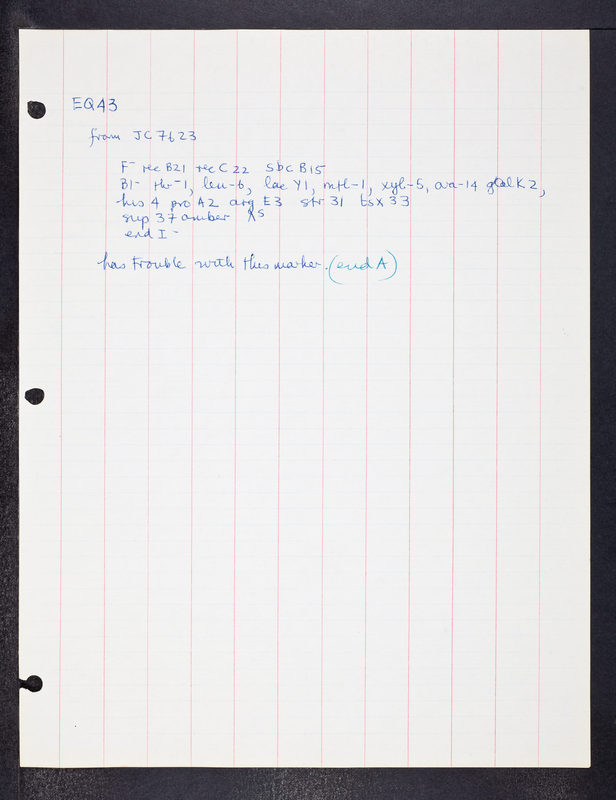 EQ43
from JC7623
F⁻ rec B21 rec C 22 Sbc B15
B1⁻ thr⁻1, leu-6, lac Y1, mtl-1, xyl-5, ara-14 galK2,
his 4 pro A2 arg E3 str 31 tsx 33
sup 37 amber λS
end I⁻
has trouble with this marker. (end A)